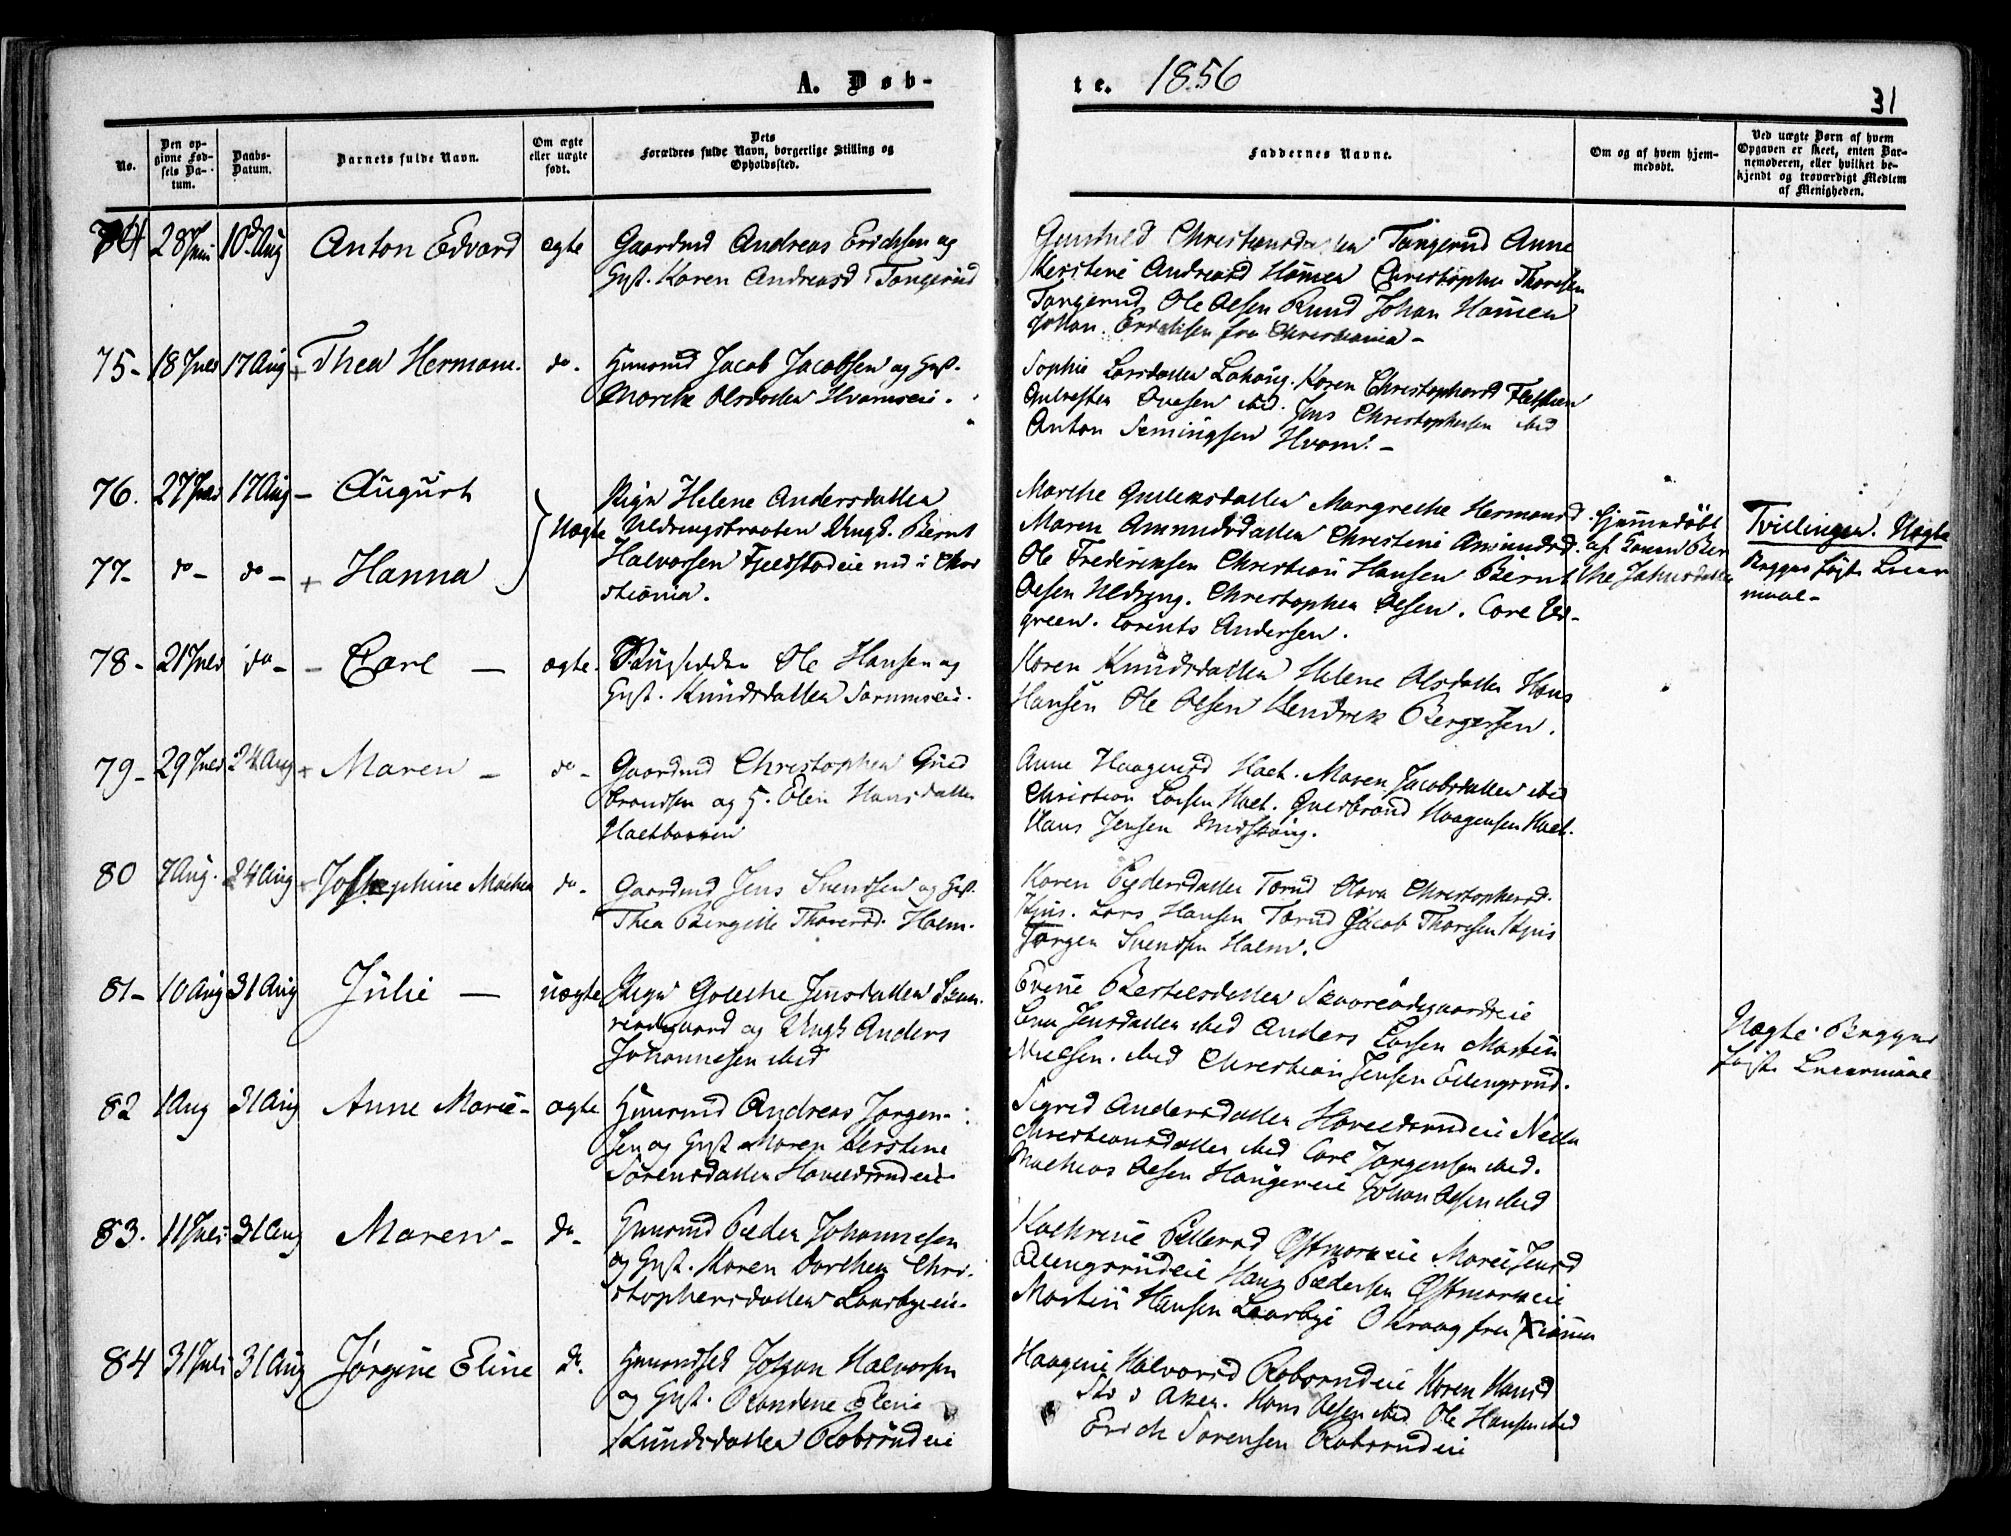 A. Døb-
te. 1856
31
No.
Den op-
givne Fød-
sels Da-
tum.
Daabs-
Datum.
Barnets fulde Navn.
Om ægte
eller uægte
født.
Dets
Forældres fulde Navn, borgerlige Stilling og
Opholdssted.
Faddernes Navne.
Om og af hvem hjem-
medøbt.
Ved uægte Børn af hvem
Opgaven er skeet, enten Bar-
nemoderen, eller hvilket be-
kjendt og troværdigt Medlem
af Menigheden.
74 28 Juni 10d Aug Anton Edvard ægte Gaardmd Andreas Erichsen og
Gust. Karen Andreasd Tangerud
Christiansdatter Tangerud Anne
Kerstine Andreasd Hamen Christopher Thoresen
Tangerud Ole Olsen Rund Johan Hamen
Johan Erichsen fra Christiania -
75- 18 Juli 17 Aug + Thea Hermane. do. Huusmd Jacob Jacobsen og Gust.
Marthe Olsdatter Hvamseie.
Sophie Larsdatter Lahaug. Karen Christophersd
Ovesen ibid. Jens Christophersen ibid
Anton Semingsen Hvam. -
76. 27 Juli 17 Aug - August
Pige Helene Andersdatter
77- do- do- + Hanna
Uægte Uldrengsbraaten Ungk. Bernt
Halvorsen Fjeldstadeie nu i Chri
stiania.
Marthe Gulliksdatter Margrethe Hermansd
Maren Amundsdatter Christine Amundsd.
Ole Frederiksen Christian Hansen Bernt
Olsen Uldreng. Christopher Olsen. Carl Ed-
green. Lorents Andersen.
hjemmedøbt
af Karen Ber
the Jahnsdatter
Tvillinger. Uægte
Begges første Leier
maal-
78- 21 Juli do- - Carl - ægte. Ole Hansen og
Gust. Knudsdatter Sørumseie.
Karen Knudsdatter Helene Olsdatter Hans
Hansen Ole Olsen Hendrik Bergersen.
79- 29 Juli 24 Aug + Maren - do- Gaardmd Christopher Guld
brandsen og H. Elen Hansdatter
Haltbakken
Anne Haagensd Holt. Maren Jacobsdatter ibid
Christian Larsen Holt. Gulbrand Haagensen Holt.
Hans Jensen
80 7 Aug. 24 Aug Josephine Mathea do- Gaardmd Jens Svendsen og Gust.
Thea Bergitte Thoresd. Holm.
Karen Pedersdatter Torud Olava Christophersd.
Kjus. Lars Hansen Torud Jacob Thoresen Kjus
Jørgen Svendsen Holm.
81- 10 Aug 31 Aug Julie - uægte Pige Golethe Jensdatter Skau-
rendgaard og Ungk Anders
Johannesen ibid
Eveine Bertelsdatter
Lena Jensdatter ibid Anders Larsen Martin
Nielsen. ibid Christian Jensen Ellengsrud.
Uægte. Begges
første Leiermaal
82 1 Aug 31 Aug Anne Marie- ægte Huusmd Andreas Jørgen-
sen og Gust Maren Kerstine
Sørensdatter Hovelsrudeie
Sigrid Andersdatter Hovelsrudeie Nella
Christiansdatter ibid Carl Jørgensen ibid.
Mathias Olsen Haugereie Johan Olsen ibid
83. 11 Juli 31 Aug Maren - do- Huusmd Peder Johannesen
og Gust. Karen Dorthea Chri-
stophersdatter Laarbyeie.
Kathrine Pedersd Østmorkeie Marie Jensd
Ellengsrudeie Hans Pedersen Østmorkeie
Martin Hansen Laarbye O Kraag fra
84 31 Juli 31 Aug Jørgine Eline do. Huusmd Johan Halvorsen
og Gust. Randine Elene
Knudsdatter Robsrudeie
Haagine Halvorsd Robsrudeie Karen Hansd
Sto i Aker. Hans Olsen ibid Ole Hansen ibid
Erich Sørensen Robsrudeie